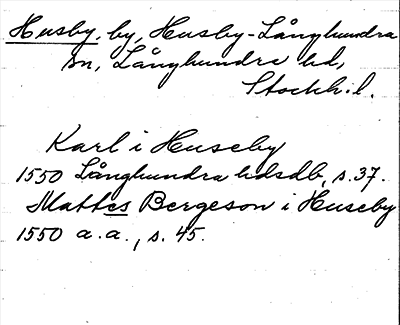 Husby, by, Husby-Långhundra
sn, Långhundra hd,
Stockh. l.
Karl i Huseby
1550 Långhundra hdsdb, s. 37.
Mattes Bergeson i Huseby
1550 a. a., s. 45.